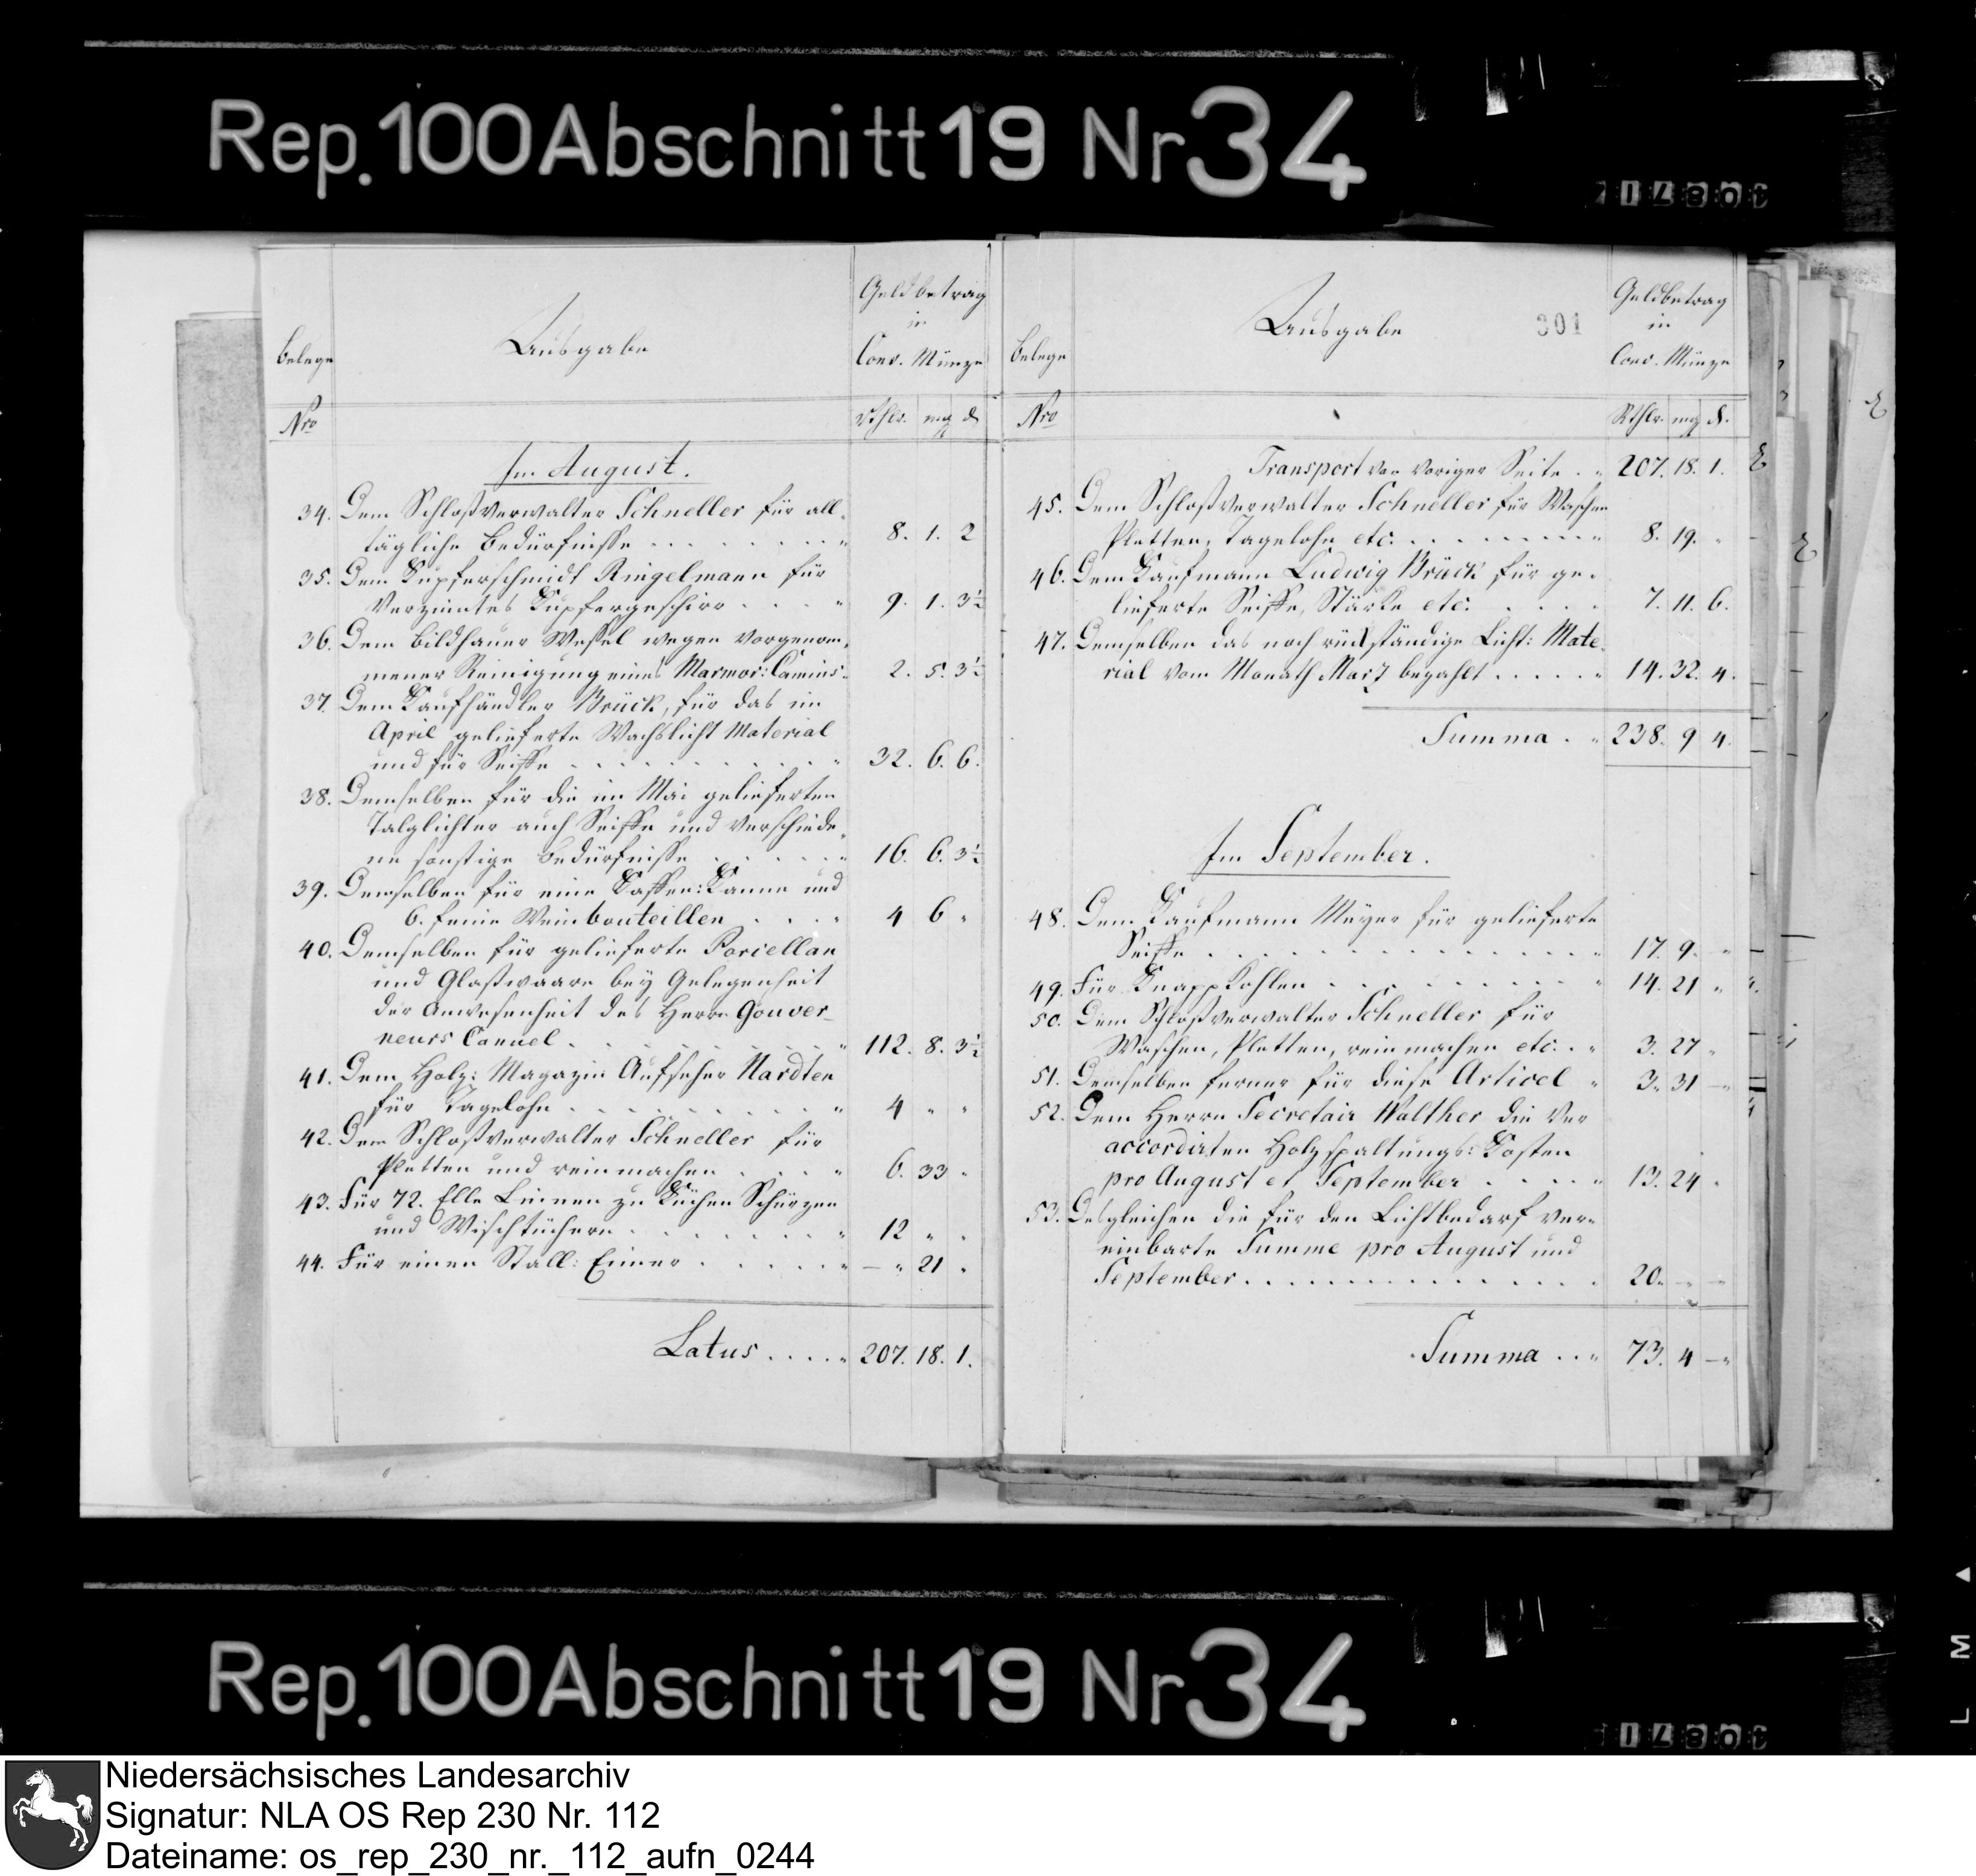 Rep. 100 Abschnitt 19 Nr 34
Belege
Ausgabe
Geldbetrag
in
Conv. Münze
Nro
Rthlr. mg ₰
Im August.
34. Dem Schloßverwalter Schneller für all-
tägliche Bedürfnisse . . . . . . . . " 8. 1. 2
35. Dem Kupferschmidt Ringelmann für
Verzinntes Kupfergeschirr . . . . " 9. 1. 3½
36. Dem Bildhauer Wessel wegen vorgenom-
mener Reinigung eines Marmor: Camins " 2. 5. 3½
37. Dem Kaufhändler Brück, für das im
April gelieferte Wachslicht Material
und für Seiffe . . . . . . . . . . " 32. 6. 6.
38. Demselben für die im Mai gelieferten
Talglichter auch Seiffe und verschiede-
ne sonstige Bedürfnisse . . . . . " 16. 6. 3½
39. Demselben für eine Kaffee: Kanne und
6. feine Weinbouteillen . . . " 4 6 "
40. Demselben für gelieferte Porcellan
und Glaßwaare bey Gelegenheit
der Anwesenheit des Herrn Gouver-
neurs Canuel . . . . . . . . . " 112. 8. 3½
41. Dem Holz: Magazin Aufseher Nardten
für Tagelohn . . . . . . . . . " 4 " "
42. Dem Schloßverwalter Schneller für
Pletten und reinmachen . . . . " 6. 33 "
43. Für 72. Elle Linnen zu Küchen Schürzen
und Wischtüchern . . . . . . . . " 12 " "
44. Für einen Stall: Eimer . . . . . " — " 21 "
Latus . . . . " 207. 18. 1.
Belege
Ausgabe
301
Geldbetrag
in
Conv. Münze
Nro
Rthlr. mg ₰.
Transport von voriger Seite . " 207. 18. 1.
45. Dem Schloßverwalter Schneller für Waschen
Pletten, Tagelohn etc. . . . . . . . . " 8. 19. "
46. Dem Kaufmann Ludwig Brück für ge-
lieferte Seiffe, Stärke etc. . . . . " 7. 11. 6.
47. Demselben das noch rückständige Licht: Mate-
rial vom Monath Marz bezahlt . . . . . " 14. 32. 4.
Summa . " 238. 9 4.
Im September.
48. Dem Kaufmann Meyer für gelieferte
Seiffe . . . . . . . . . . . . . . " 17. 9. "
49. Für Knappkohlen . . . . . . . . . " 14. 21 "
50. Dem Schloßverwalter Schneller für
Waschen, Pletten, rein machen etc. . " 3. 27 "
51. Demselben ferner für diese Articel " 3. 31 — "
52. Dem Herrn Secretair Walther die Ver
accordirten Holzspaltungs: Kosten
pro August et September . . . . . " 13. 24 "
53. Desgleichen die für den Lichtbedarf ver-
einbarte Summe pro August und
September . . . . . . . . . . . . . . . " 20. — " — "
Summa . . " 73. 4 — "
Rep. 100 Abschnitt 19 Nr 34
Niedersächsisches Landesarchiv
Signatur: NLA OS Rep 230 Nr. 112
Dateiname: os_rep_230_nr._112_aufn_0244